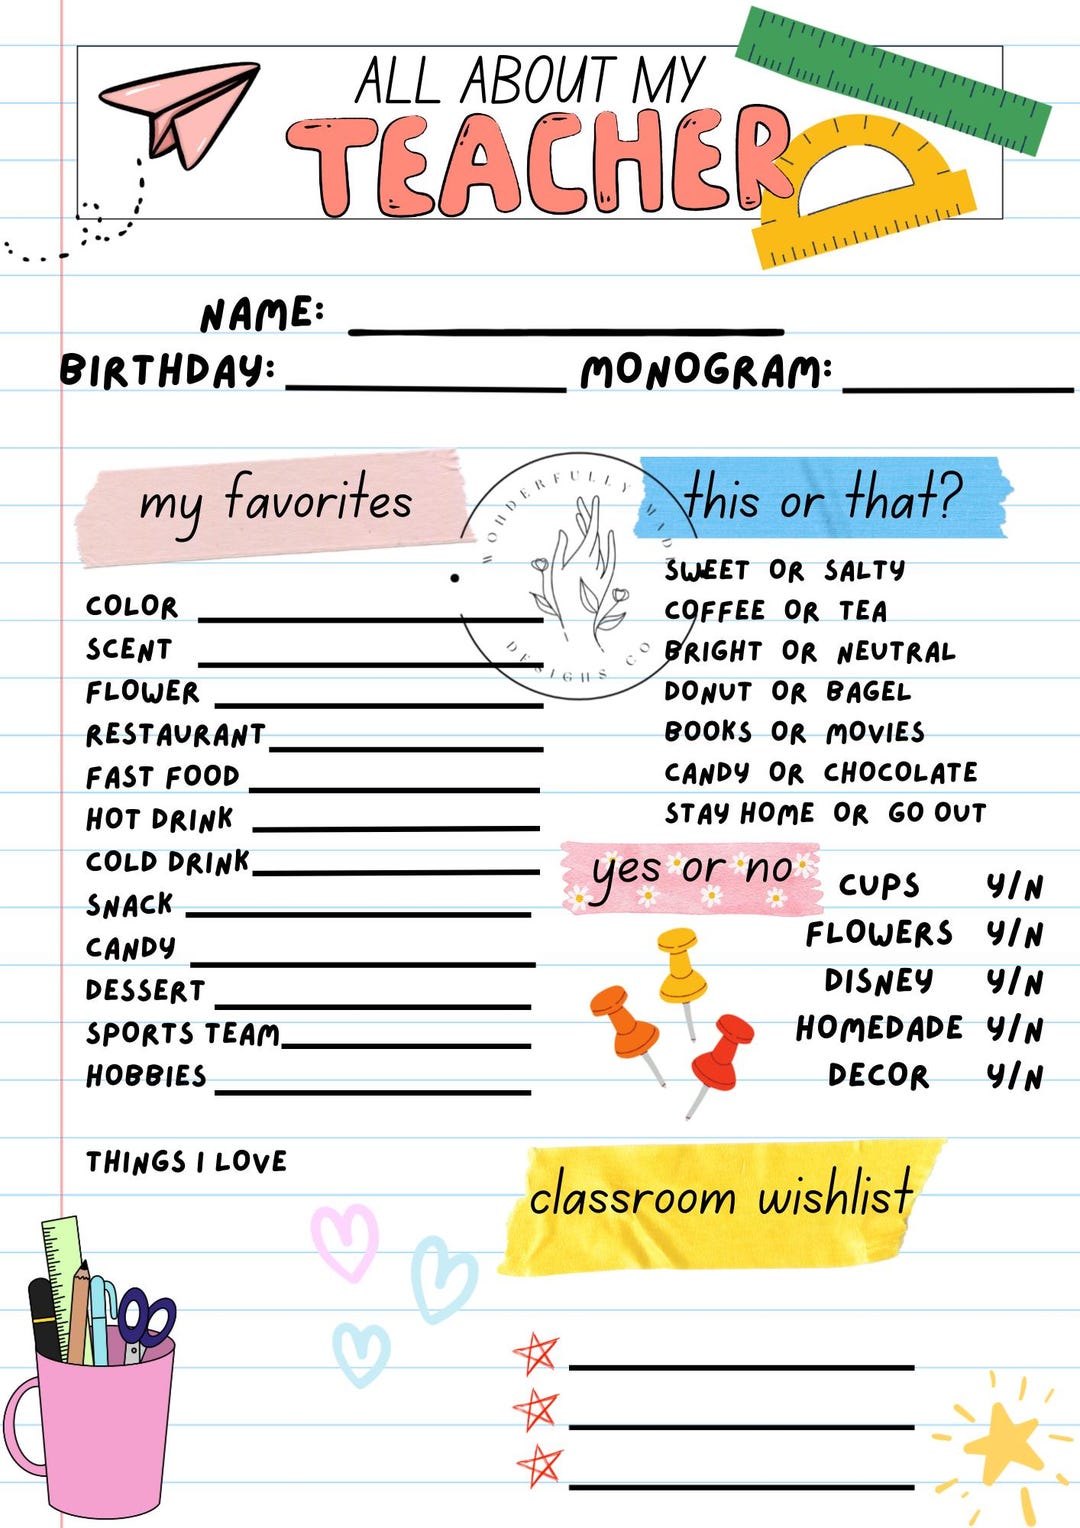 ALL ABOUT MY
TEACHER
NAME:
BIRTHDAY: MONOGRAM:
my favorites
COLOR
SCENT
FLOWER
RESTAURANT
FAST FOOD
HOT DRINK
COLD DRINK
SNACK
CANDY
DESSERT
SPORTS TEAM
HOBBIES
WONDERFULLY MADE
DESIGNS CO
this or that?
SWEET OR SALTY
COFFEE OR TEA
BRIGHT OR NEUTRAL
DONUT OR BAGEL
BOOKS OR MOVIES
CANDY OR CHOCOLATE
STAY HOME OR GO OUT
yes or no
CUPS Y/N
FLOWERS Y/N
DISNEY Y/N
HOMEDADE Y/N
DECOR Y/N
THINGS I LOVE
classroom wishlist